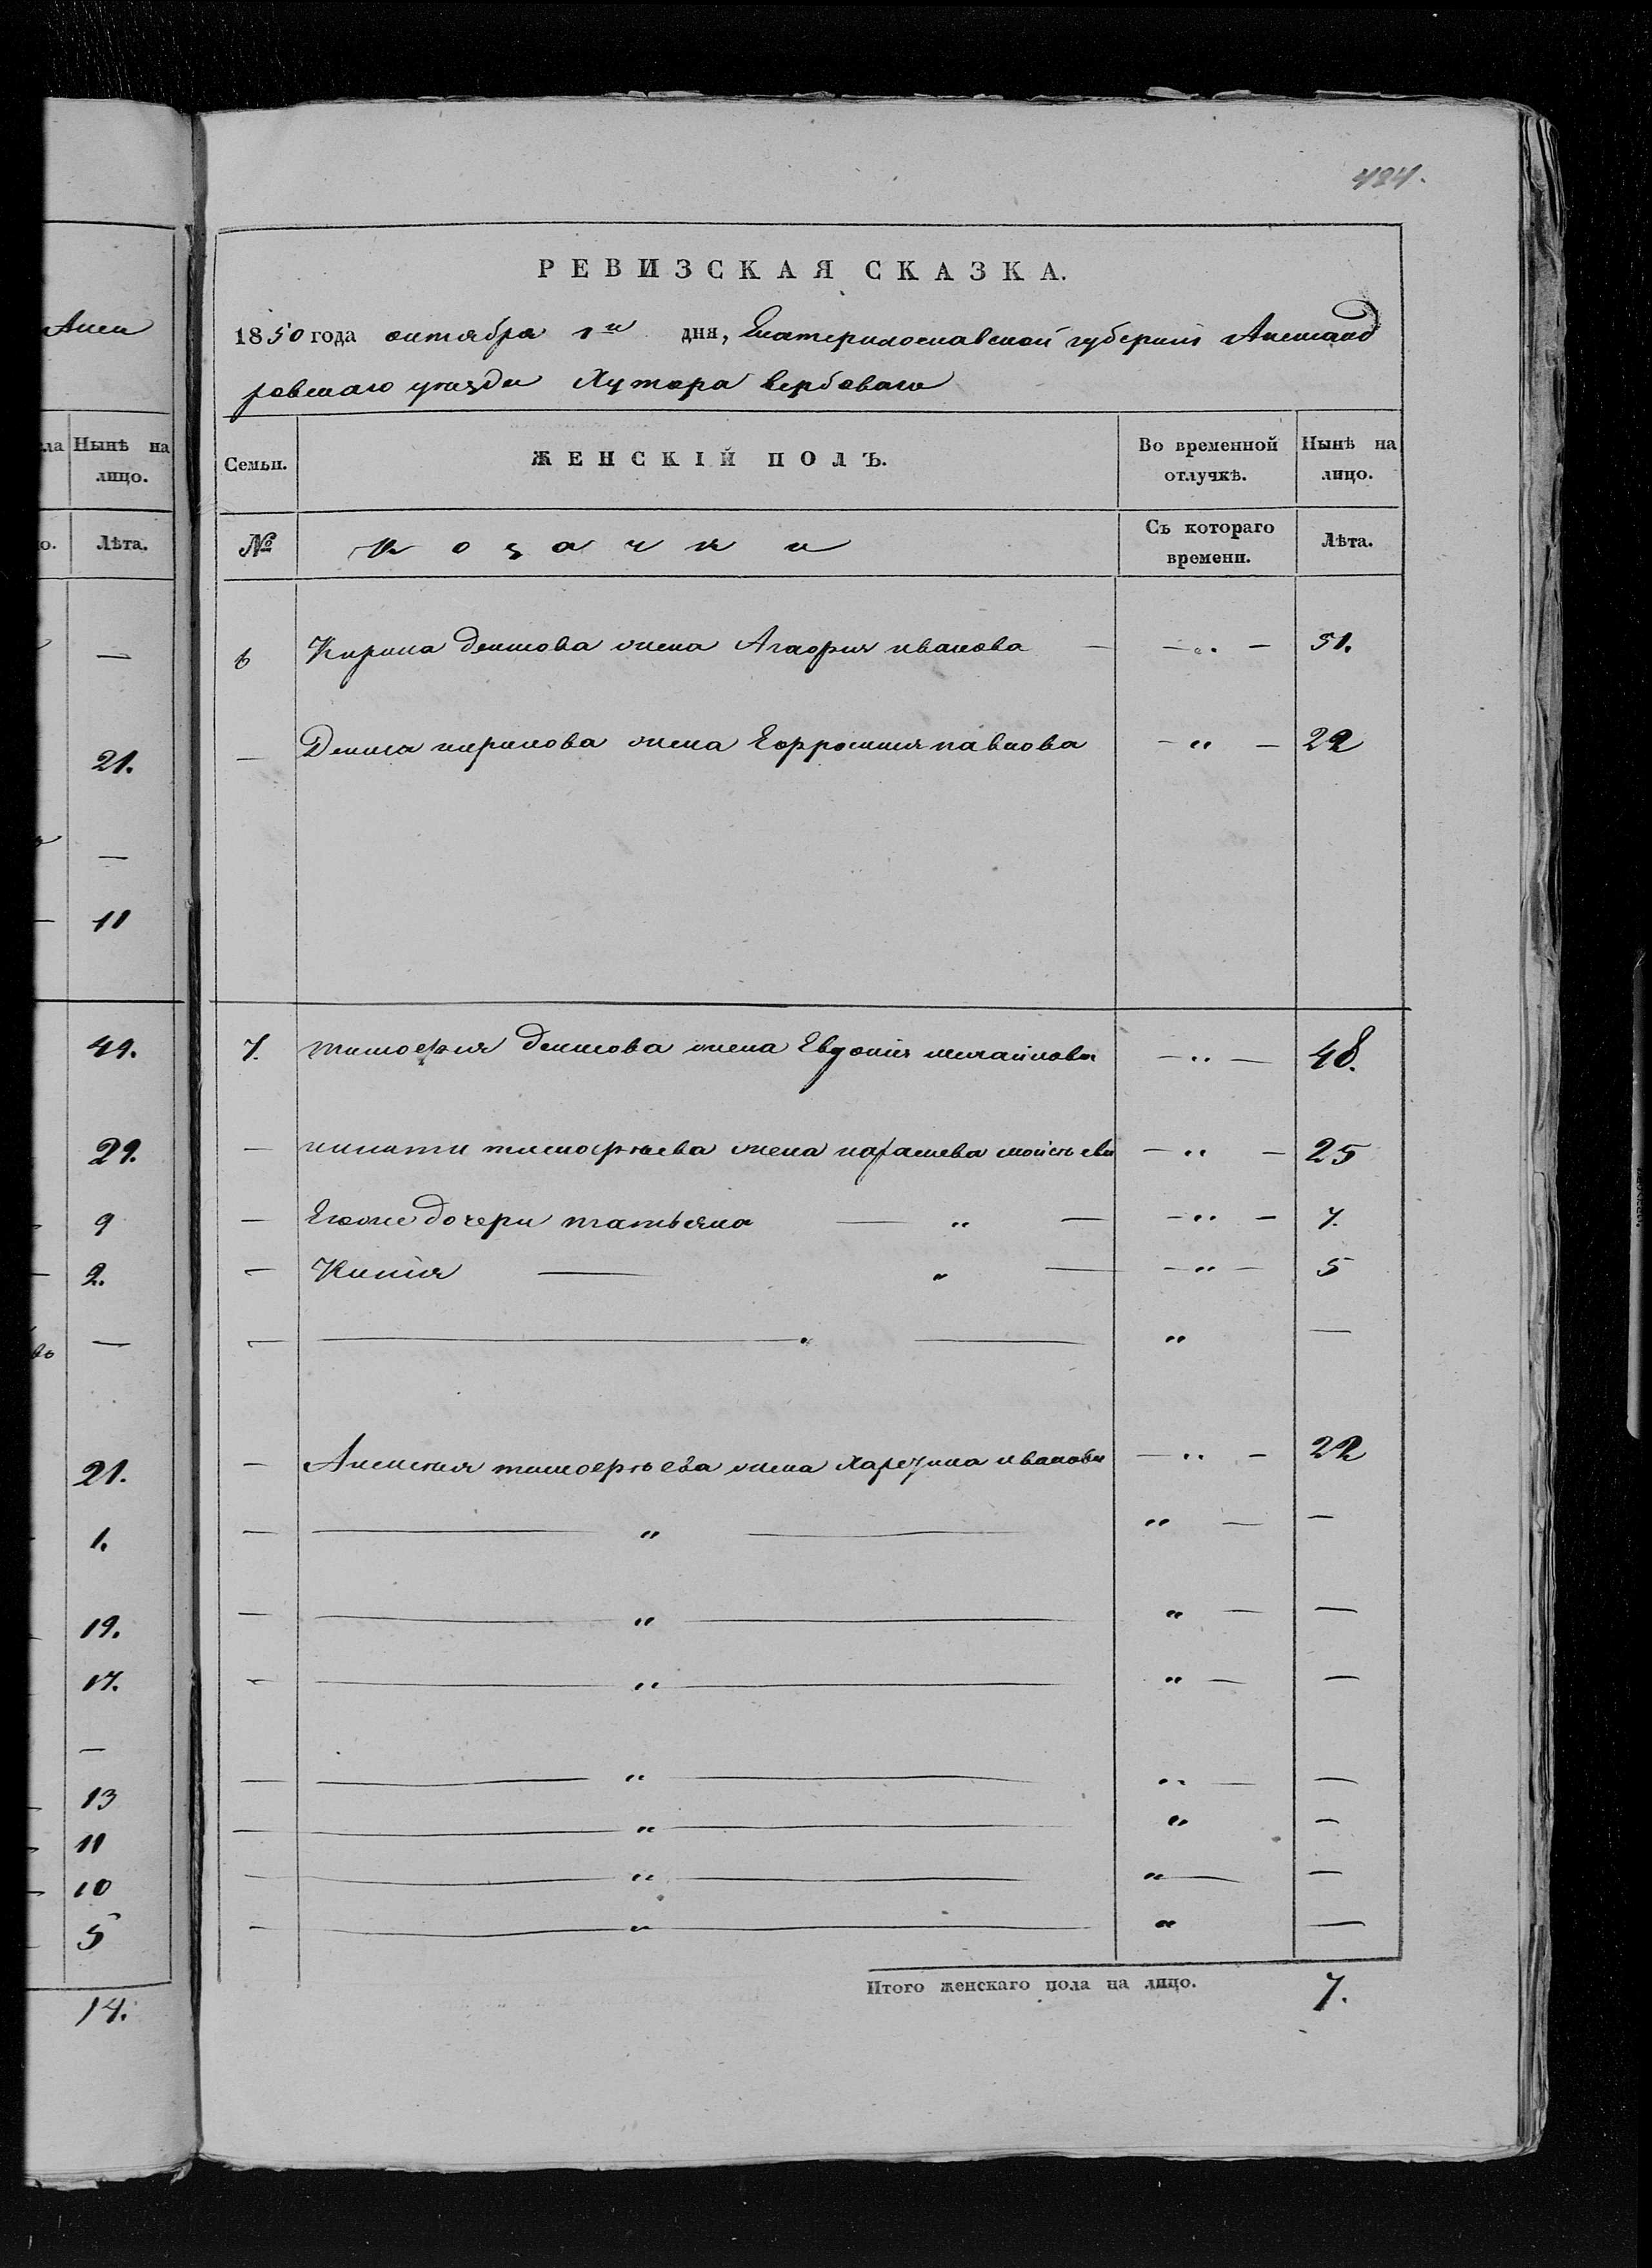 424.
Алек
РЕВИЗСКАЯ СКАЗКА.
1850 года октября 1го дня, Екатеринославской губернии Александ
ровскаго уезда Хутора вербоваго
ла Нынѣ на лицо.
Семьи. ЖЕНСКІЙ ПОЛЪ. Во временной отлучкѣ. Нынѣ на лицо.
о. Лѣта.
№ Козачки Съ котораго времени. Лѣта.
6 Кирила денисова жена Агафия иванова — — „ — 51.
— Дениса кирилова жена Ефросиния павлова — „ — 22
7. тимофия денисова жена Евдокия михайлова — „ — 48.
— никити тимофѣева жена парасковя мойсѣева — „ — 25
— Егоже дочери татьяна — „ — — „ — 7.
— Килия — „ — — „ — 5
— — „ — „ —
— Алексия тимофѣева жена Харетина иванова — „ — 22
— — „ — „ — —
— — „ — „ — —
— — „ — „ — —
— — „ — „ — —
— — „ — „ —
— — „ — „ — —
— — „ — „ —
Итого женскаго пола на лицо. 7.
—
21.
—
11
49.
29.
9
2.
—
21.
1.
19.
17.
—
13
11
10
5
14.